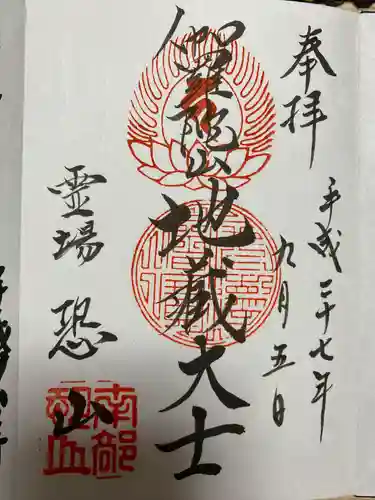 奉拝
平成二十七年
九月五日
伽羅陀山地蔵大士
霊場恐山
南部
恐山